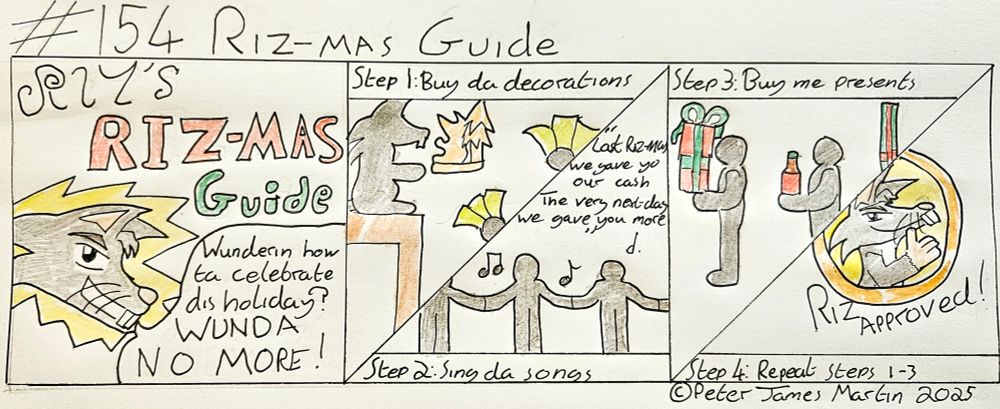 #154 RIZ-MAS GUIDE
RIY'S
RIZ-MAS
GUiDE
Wunderin how
ta celebrate
dis holiday?
WUNDA
NO MORE!
Step 1: Buy da decorations
"Last Riz-mas
we gave yo
our cash
The very next day
we gave you more
"
Step 2: Sing da songs
Step 3: Buy me presents
RIZ
APPROVED!
Step 4: Repeat steps 1-3
©PETER JAMES MARTIN 2025